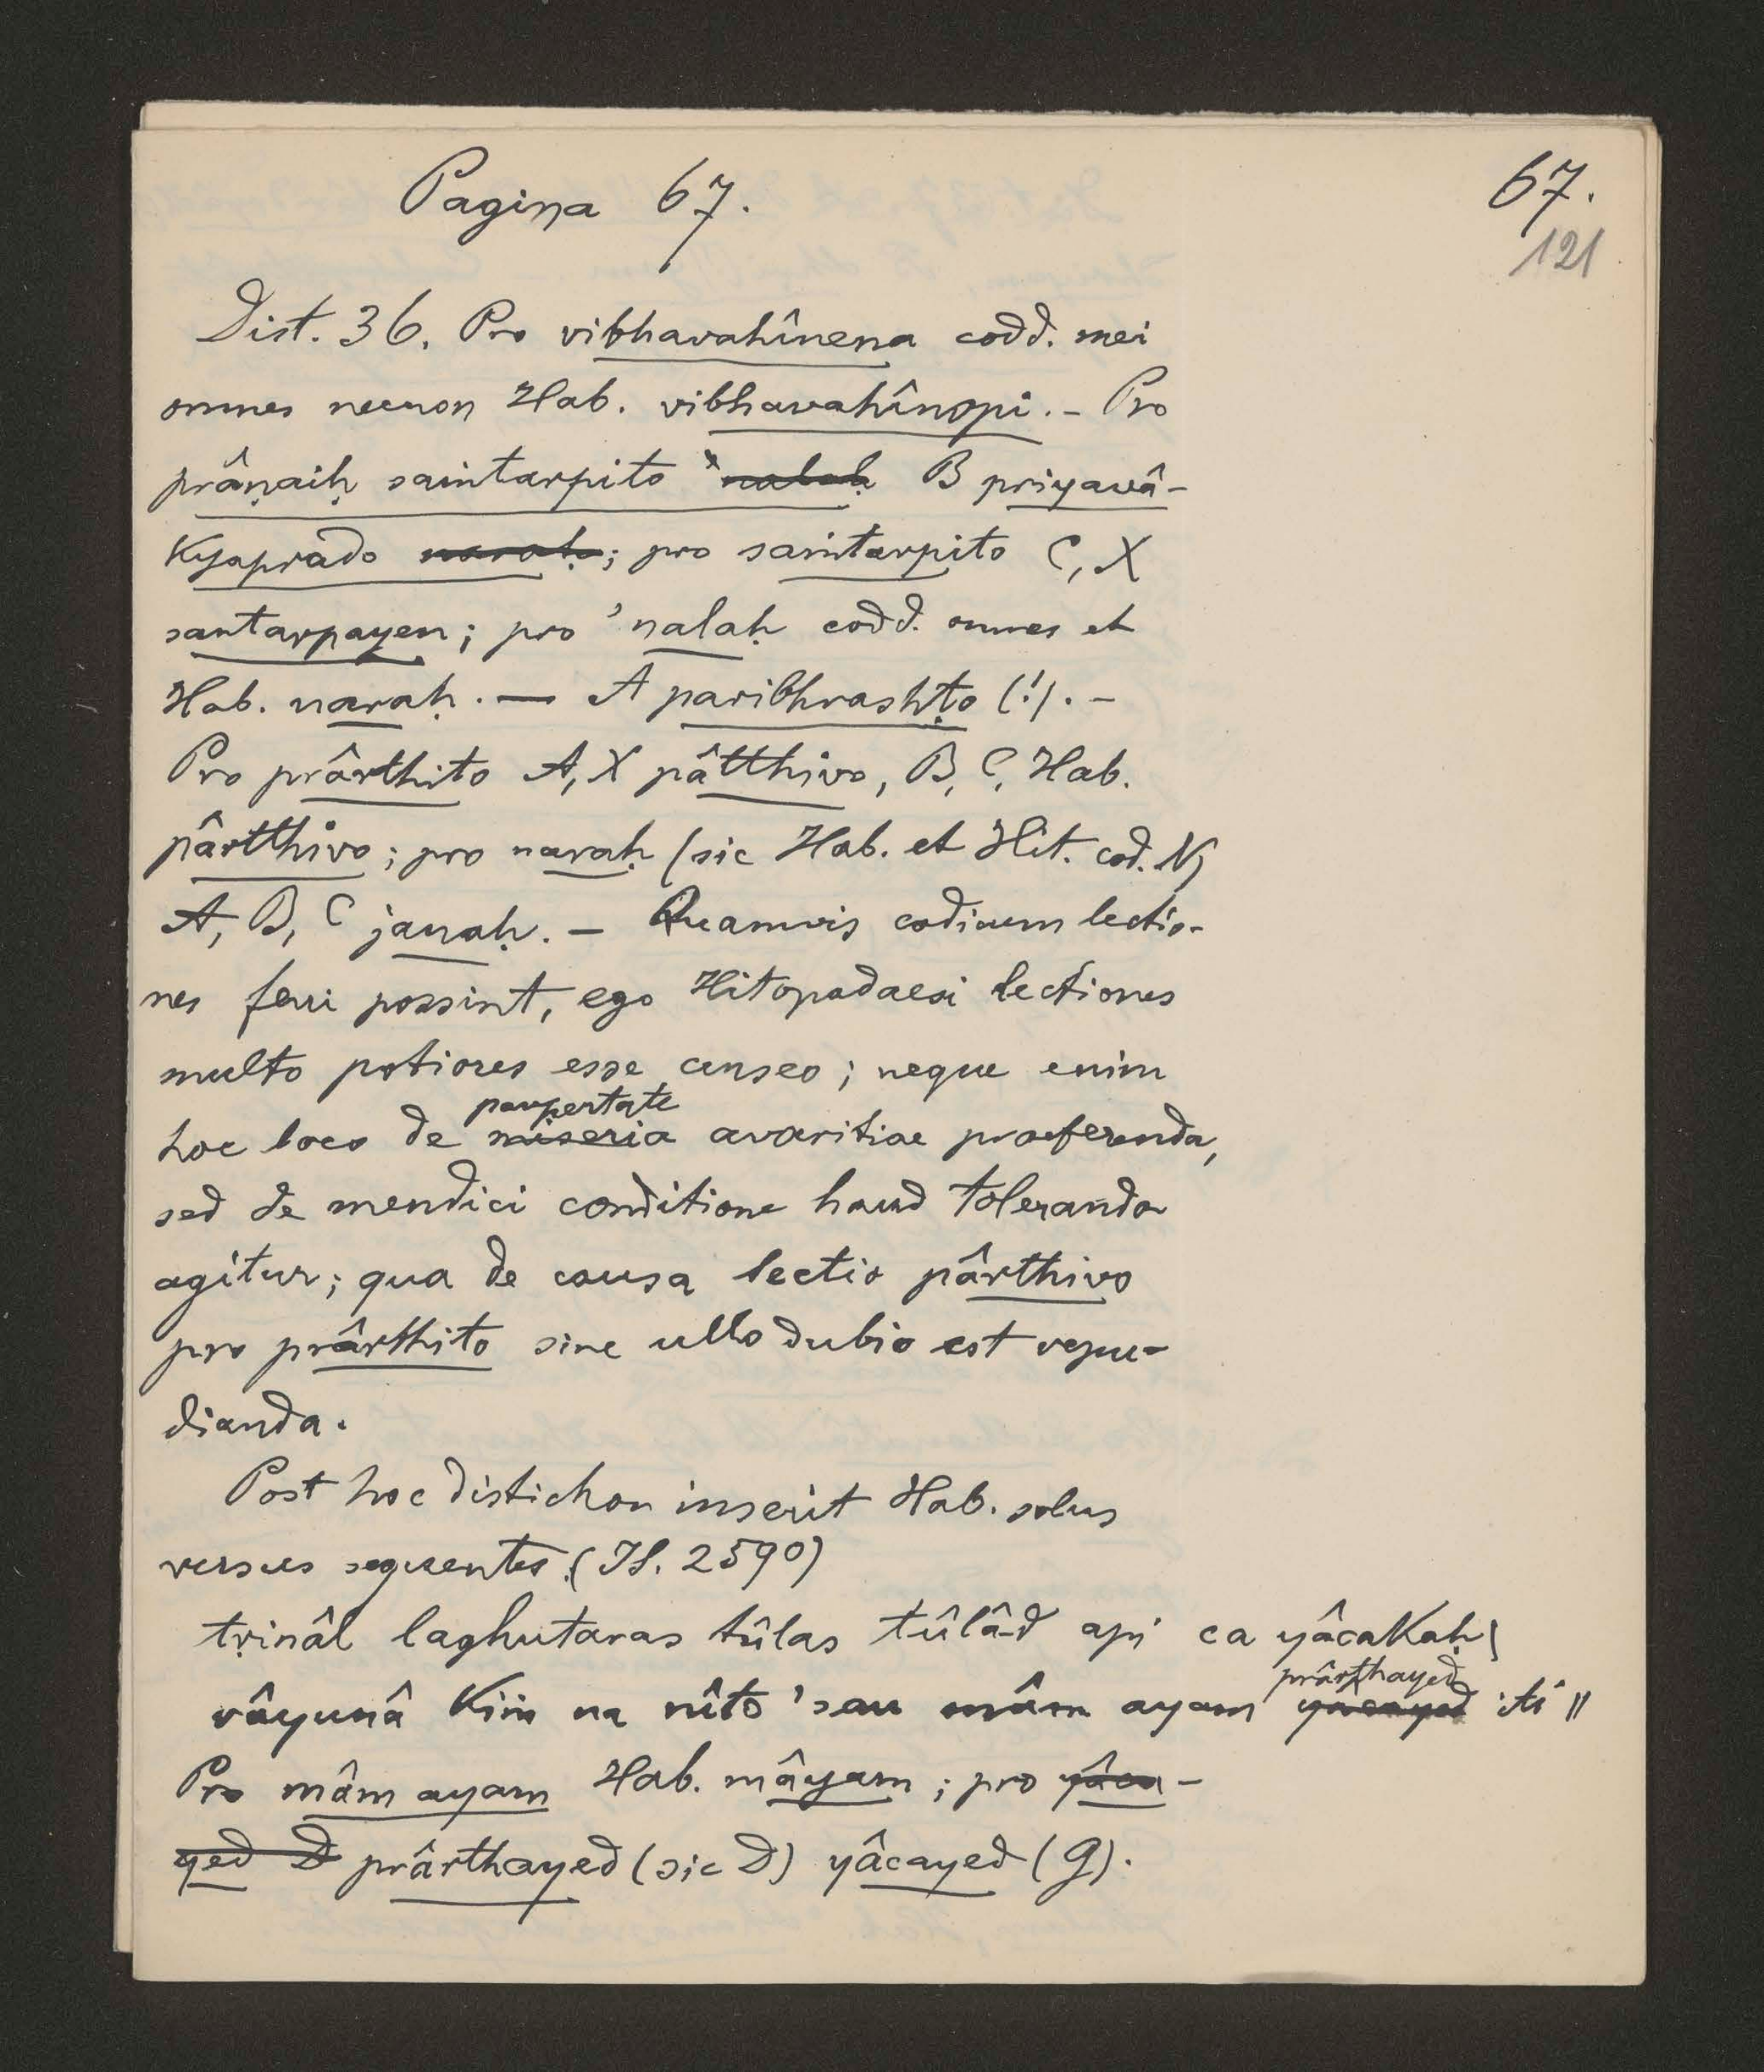 Pagina 67.
67.
121
Dist. 36. Pro vibhavahînena codd. mei
omnes necnon Hab. vibhavahînopi. - Pro
prâṇaiḥ saṁtarpito 'nalaḥ B priyavâ-
kyaprado naraḥ; pro saṁtarpito C, X
santarpayen; pro 'nalaḥ codd. omnes et
Hab. naraḥ. — A paribhrashṭo (!). -
Pro prârthito A, X pâtthivo, B, C, Hab.
pârtthivo; pro naraḥ (sic Hab. et Hit. cod. N)
A, B, C janaḥ. - Quamvis codicum lectio-
nes ferri possint, ego Hitopadaesi lectiones
multo potiores esse censeo; neque enim
paupertate
hoc loco de miseria avaritiae praeferenda,
sed de mendici conditione haud toleranda
agitur; qua de causa lectio pârthivo
pro prârthito sine ullo dubio est repu-
dianda.
Post hoc distichon inserit Hab. solus
versus sequentes (IS. 2590)
tṛinâl laghutaras tûlas tûlâd api ca yâcakaḥ |
prârthayed
vâyunâ kiṁ na nîto 'sau mâm ayam yâcayed iti ||
Pro mâm ayam Hab. mâyam; pro yâca-
yed D prârthayed (sic D) yâcayed (G).